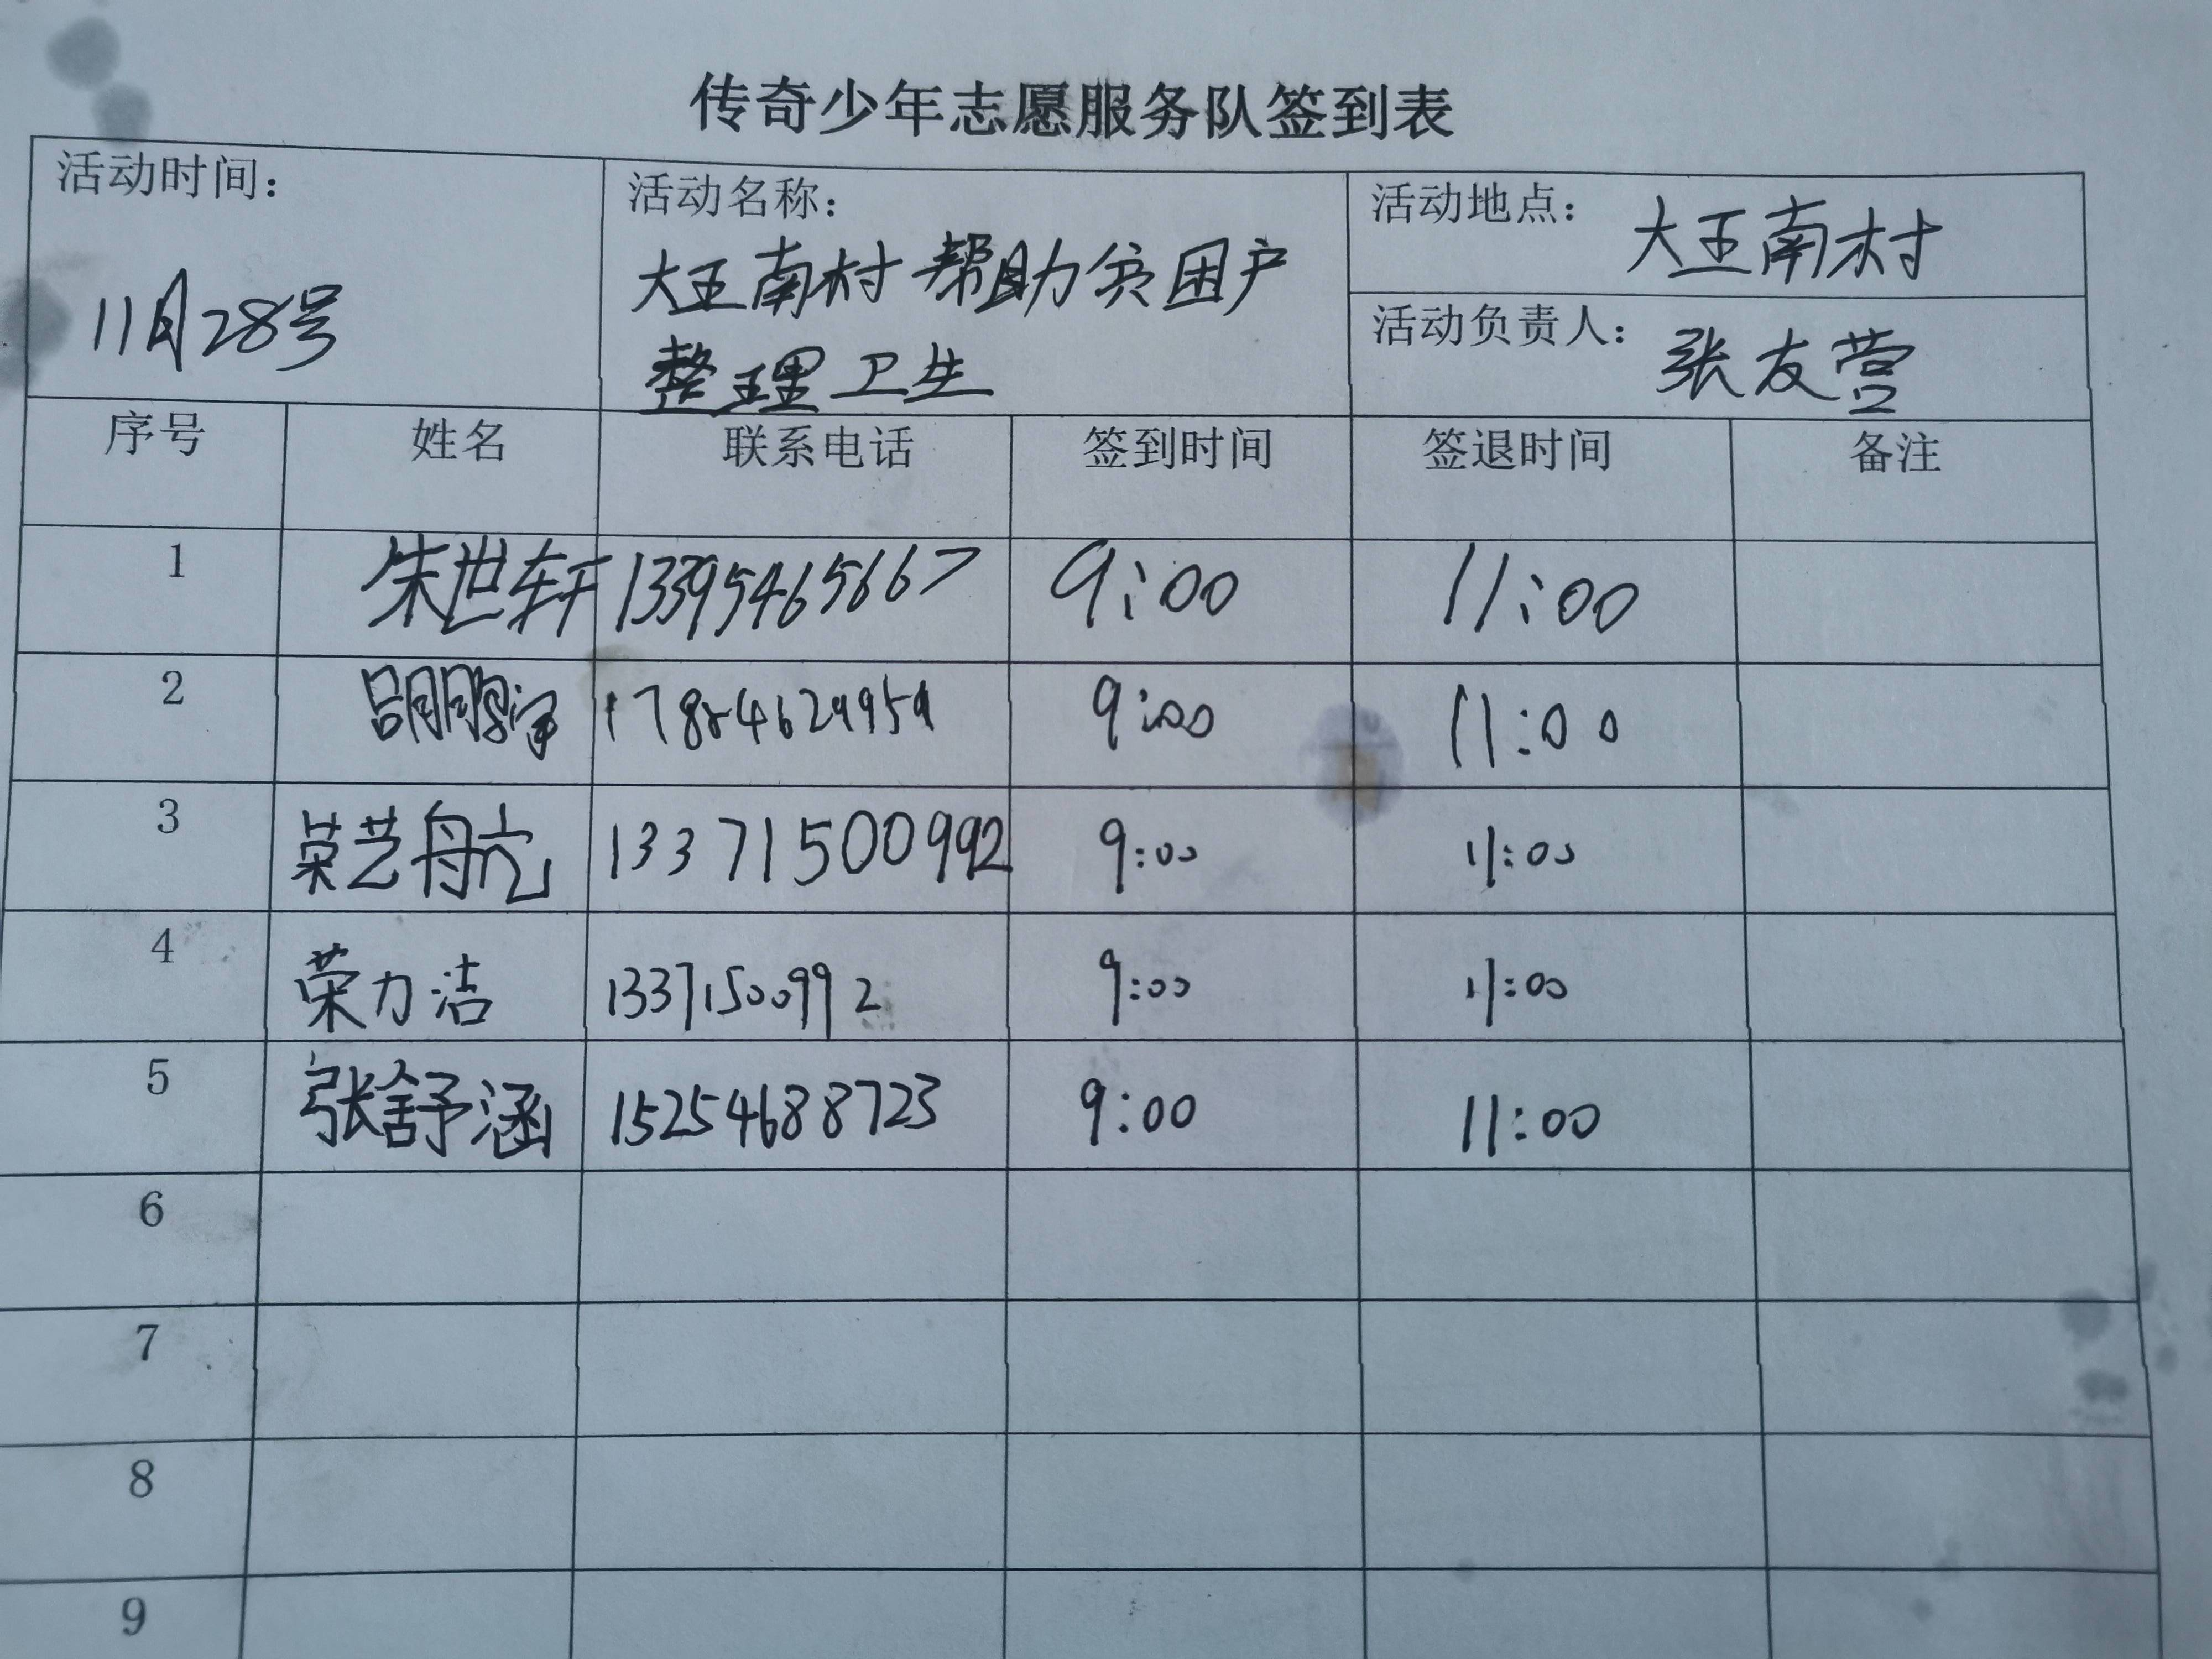 传奇少年志愿服务队签到表
活动时间: 活动名称: 活动地点: 大王南村
11月28号 大王南村帮助贫困户
整理卫生 活动负责人: 张友营
序号 姓名 联系电话 签到时间 签退时间 备注
1 朱世轩 13395465667 9:00 11:00
2 9:00 11:00
3 荣艺舟 13371500992 9:00 11:00
4 荣力洁 13371500992 9:00 11:00
5 张舒涵 15254688723 9:00 11:00
6
7
8
9